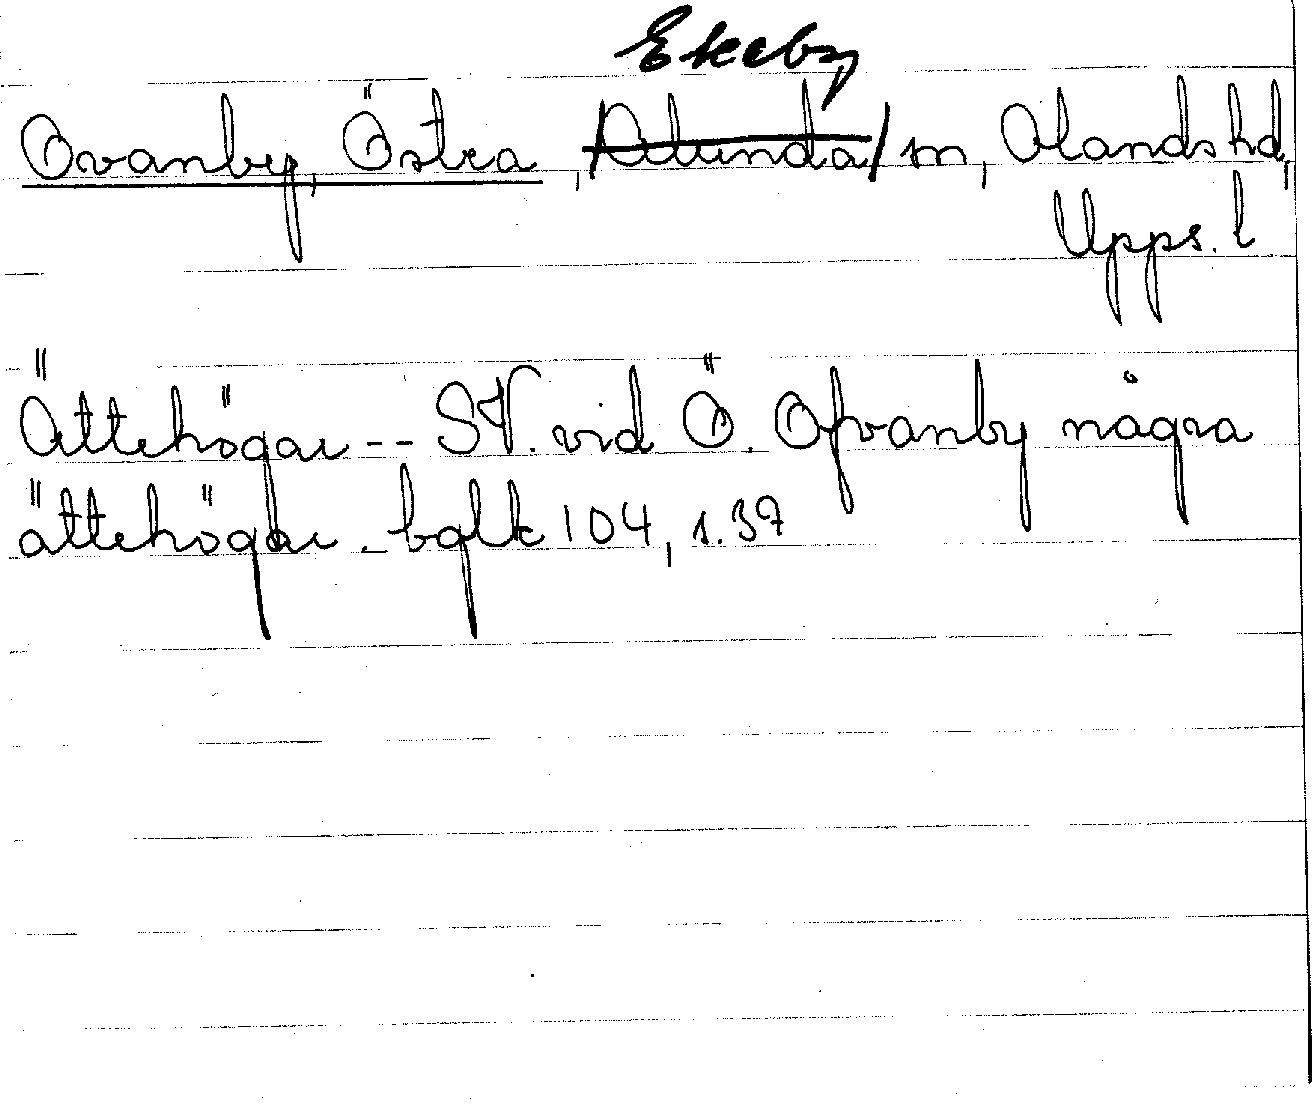 Ekeby
Ovanby, Östra, Alunda/ sn, Olands hd,
Upps. l
Ättehögar -- SV. vid Ö. Ofvanby några
ättehögar. - bglk 104, s. 37